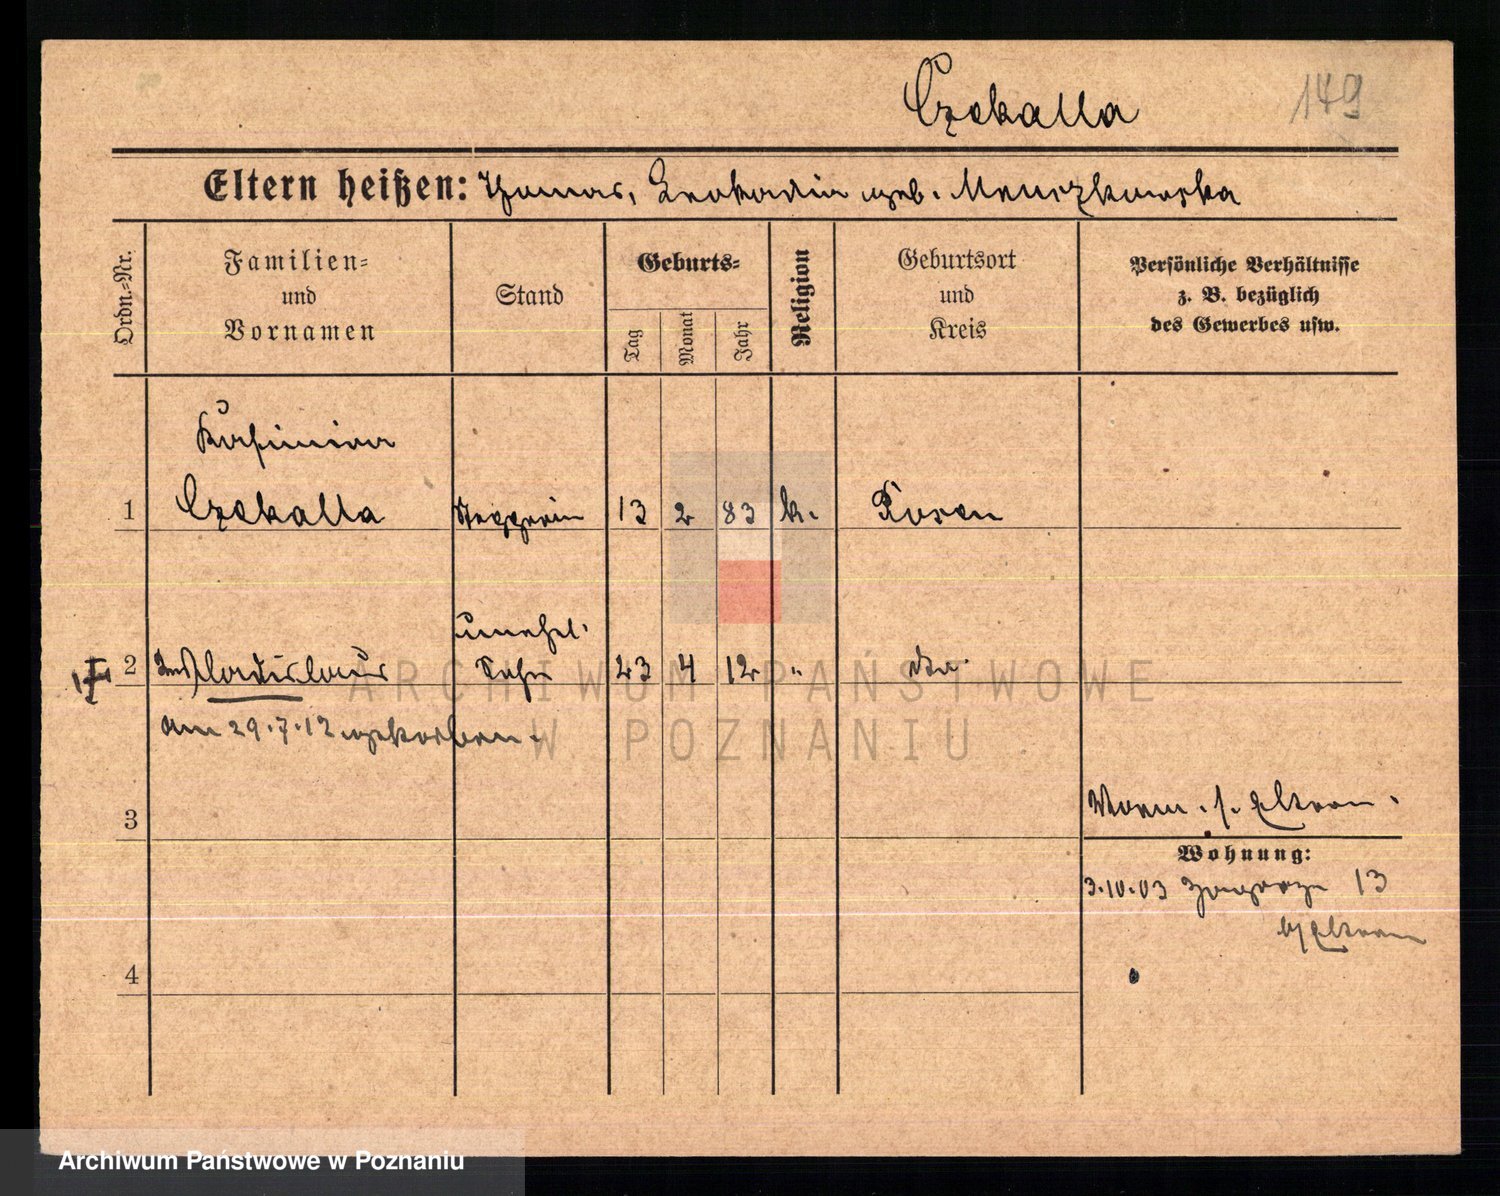 Czekalla 149
Eltern heißen: Thomas, Leokadia geb. Meuszkowska
Ordn.-Nr.
Familien-
und
Vornamen
Stand
Geburts-
Tag
Monat
Jahr
Religion
Geburtsort
und
Kreis
Persönliche Verhältnisse
z. B. bezüglich
des Gewerbes usw.
Kasimira
1 Czekalla 13 2 83 k. Posen
unehel.
2 Wladislaus Sohn 23 4 12 " do.
am 29.7.12 gestorben.
ARCHIWUM PAŃSTWOWE
W POZNANIU
3 Vorm. s. Eltern.
Wohnung:
3.10.03 Zagorze 13
b/Eltern
4
Archiwum Państwowe w Poznaniu